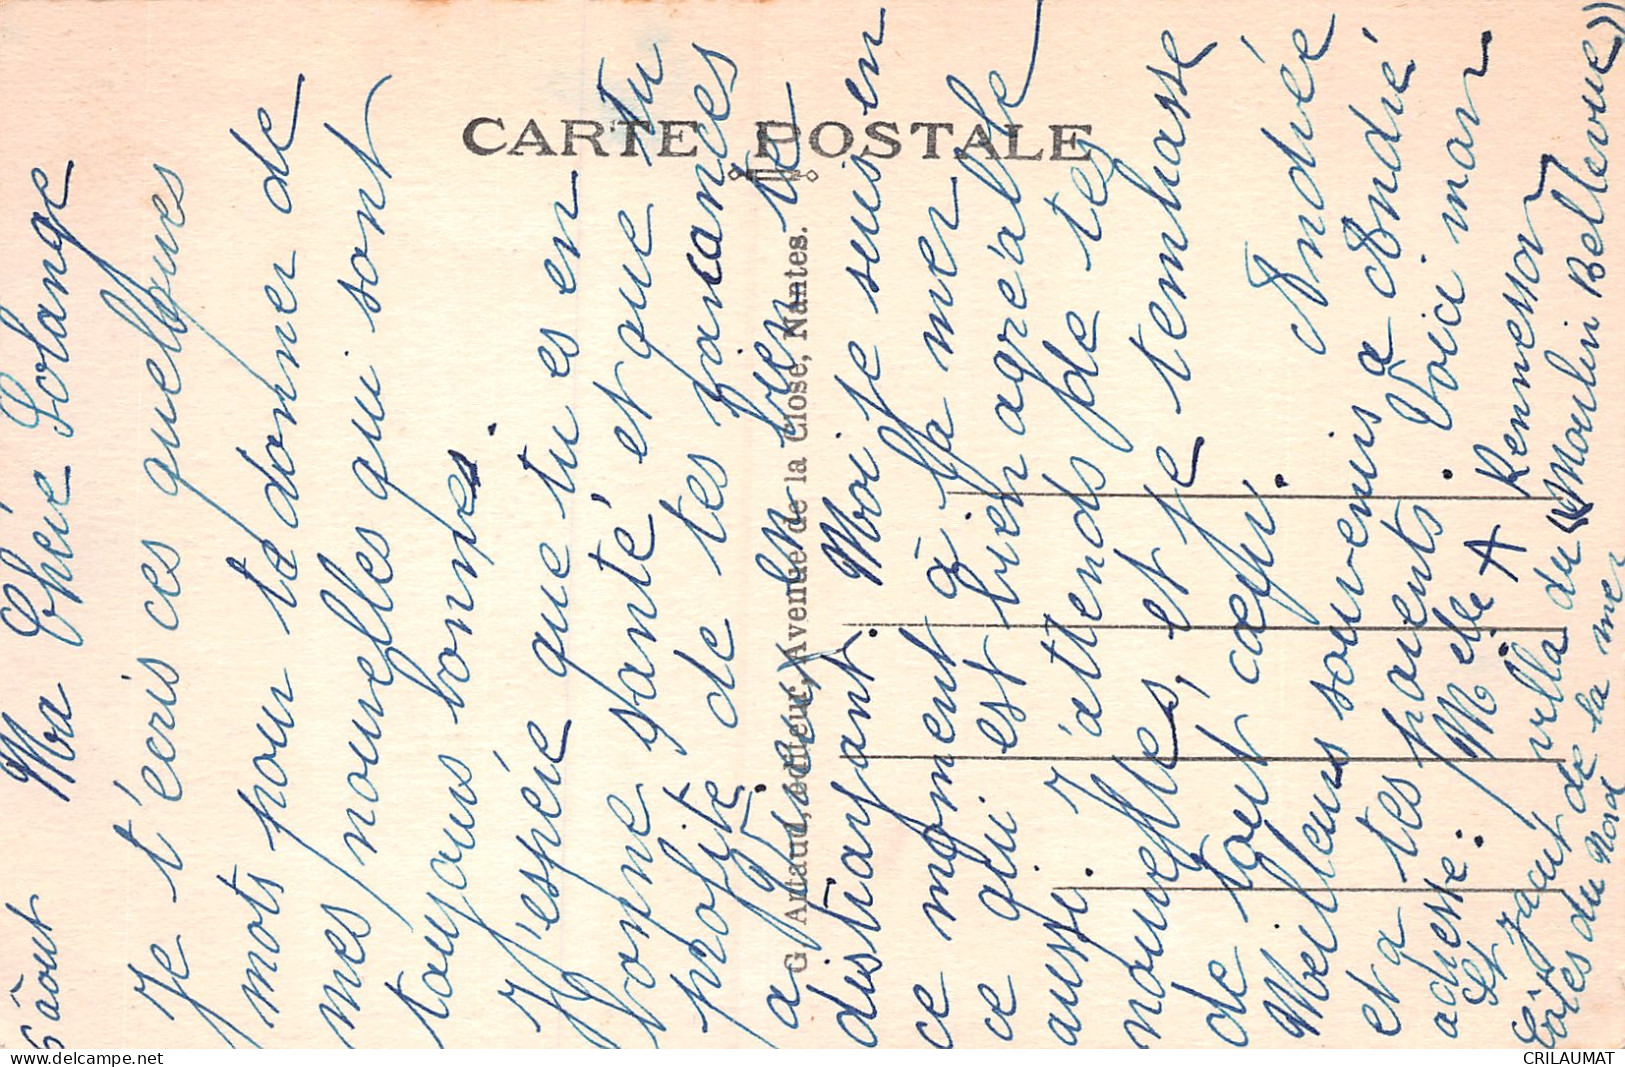 CARTE POSTALE
G. Artaud, éditeur, Avenue de la Close, Nantes.
6 âout
Ma Chère Solange
Je t'écris ces quelques
mots pour te donner de
mes nouvelles qui sont
toujours bonnes.
J'espère que tu es en
bonne santé et que tu
profite de tes vancances
a bien te
distrayant. Moi je suis en
ce moment à la mer
ce qui est bien agréable
aussi. J'attends de tes
nouvelles, et je t'embrasse
de tout cœur.
Andrée
Meilleurs souvenirs a André
et a tes parents. Voici mon
adresse: Melle A Rennesson
St Jacut villa du "Moulin Bellevue"
Côtes du Nord de la mer
CRILAUMAT